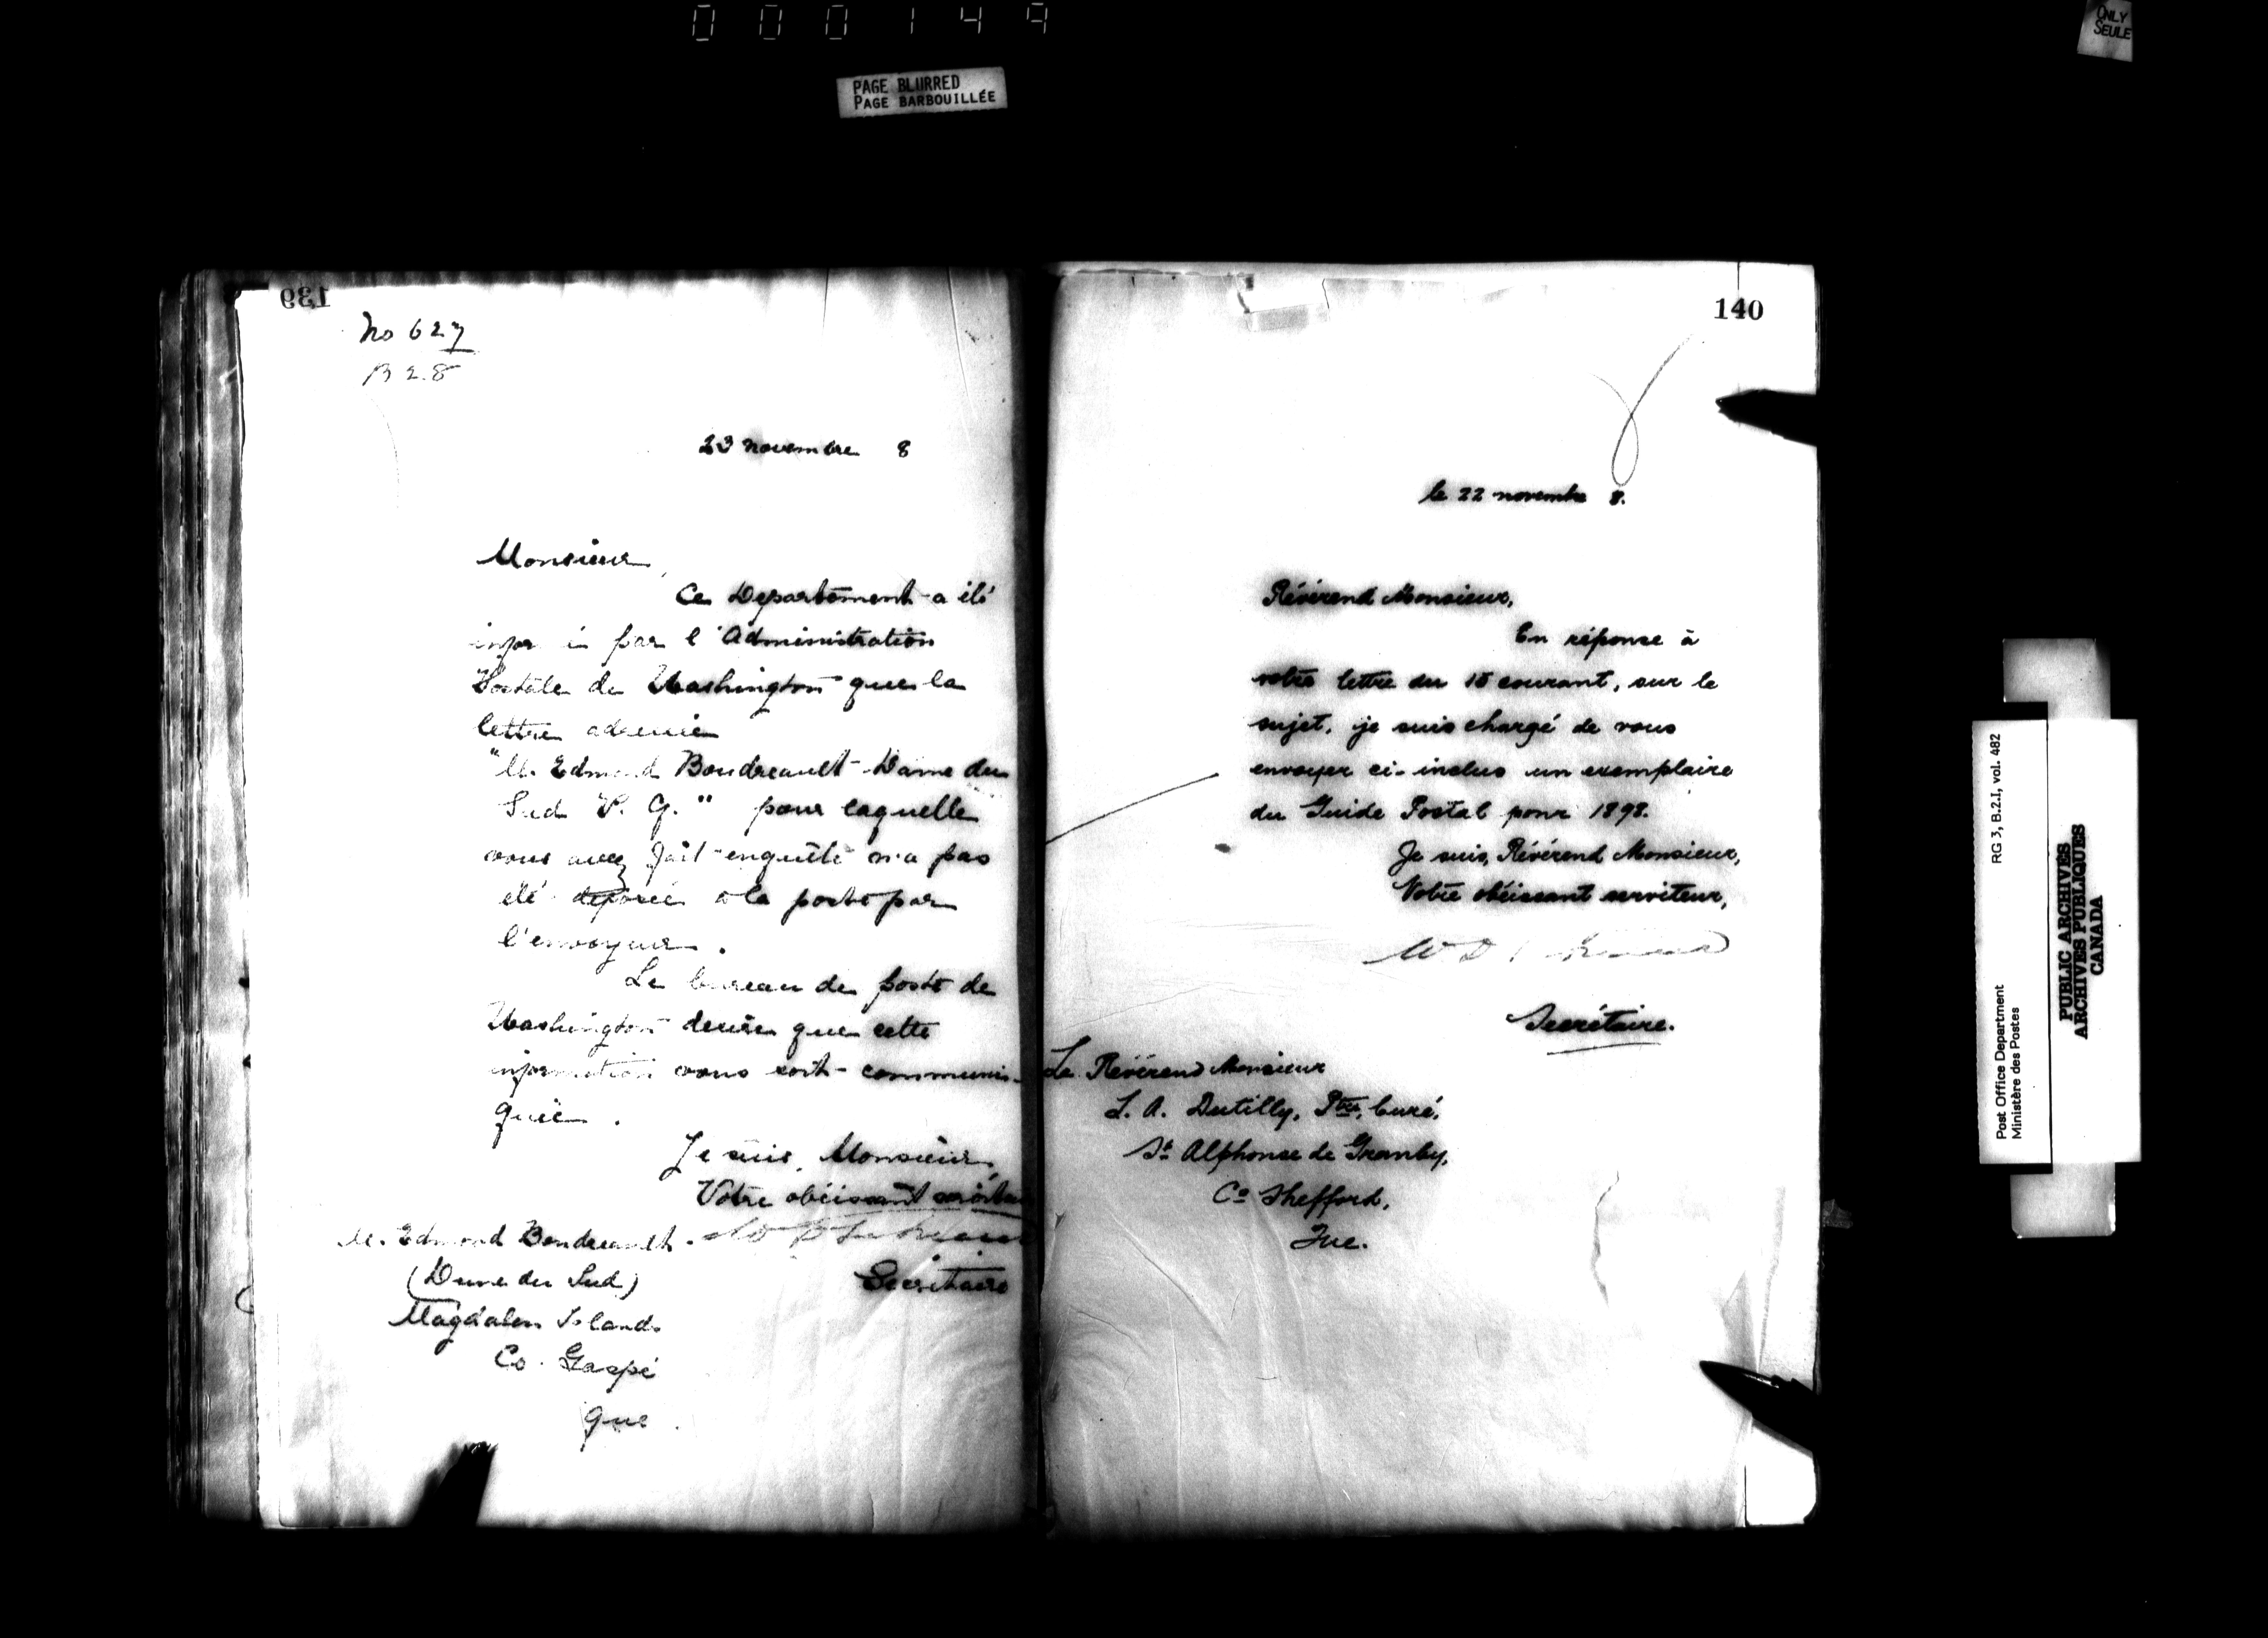 000149
PAGE BLURRED
PAGE BARBOUILLÉE
ONLY
SEULE
139
No 627
B 2.8
23 novembre 8
Monsieur,
Ce Departement a été
par l'Administration
Postale de Washington que la
lettre adressée
"M. Edmond Boudreault Dame du
Sud P. Q." pour laquelle
vous avez fait enquête n'a pas
été déposée à la poste par
l'envoyeur.
Le bureau de poste de
Washington desire que cette
information vous soit communi-
quée.
Je suis, Monsieur,
Votre obéissant serviteur
Secrétaire
M. Edmond Boudreault
(Dune du Sud)
Magdalen Islands
Co. Gaspé
Que.
140
le 22 novembre 8.
Révérend Monsieur,
En réponse à
votre lettre du 15 courant, sur le
sujet, je suis chargé de vous
envoyer ci-inclus un exemplaire
du Guide Postal pour 1898.
Je suis, Révérend Monsieur,
Votre obéissant serviteur,
Secrétaire.
Le Révérend Monsieur
L. A. Dutilly, Ptre, Curé,
St Alphonse de Granby,
Co Shefford,
Que.
RG 3, B.2.I, vol. 482
Post Office Department
Ministère des Postes
PUBLIC ARCHIVES
ARCHIVES PUBLIQUES
CANADA